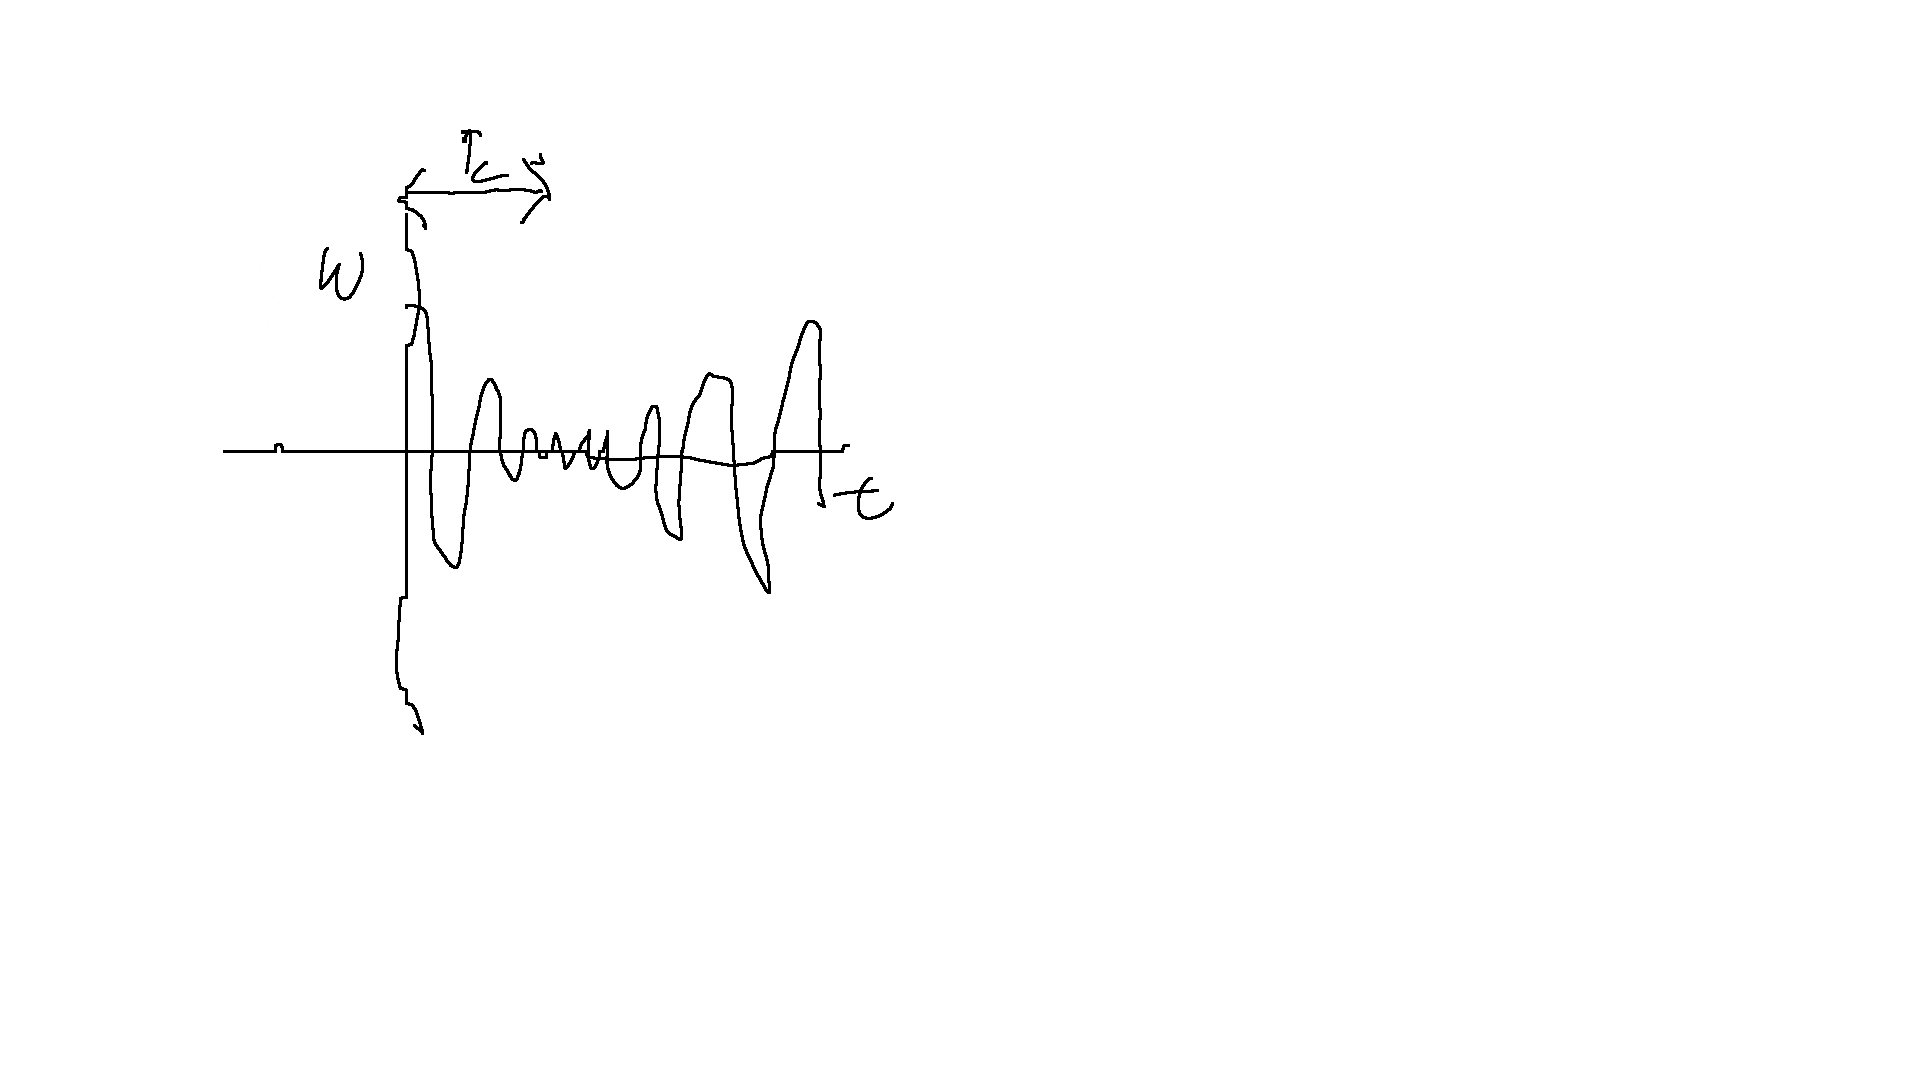 Tc
W
t